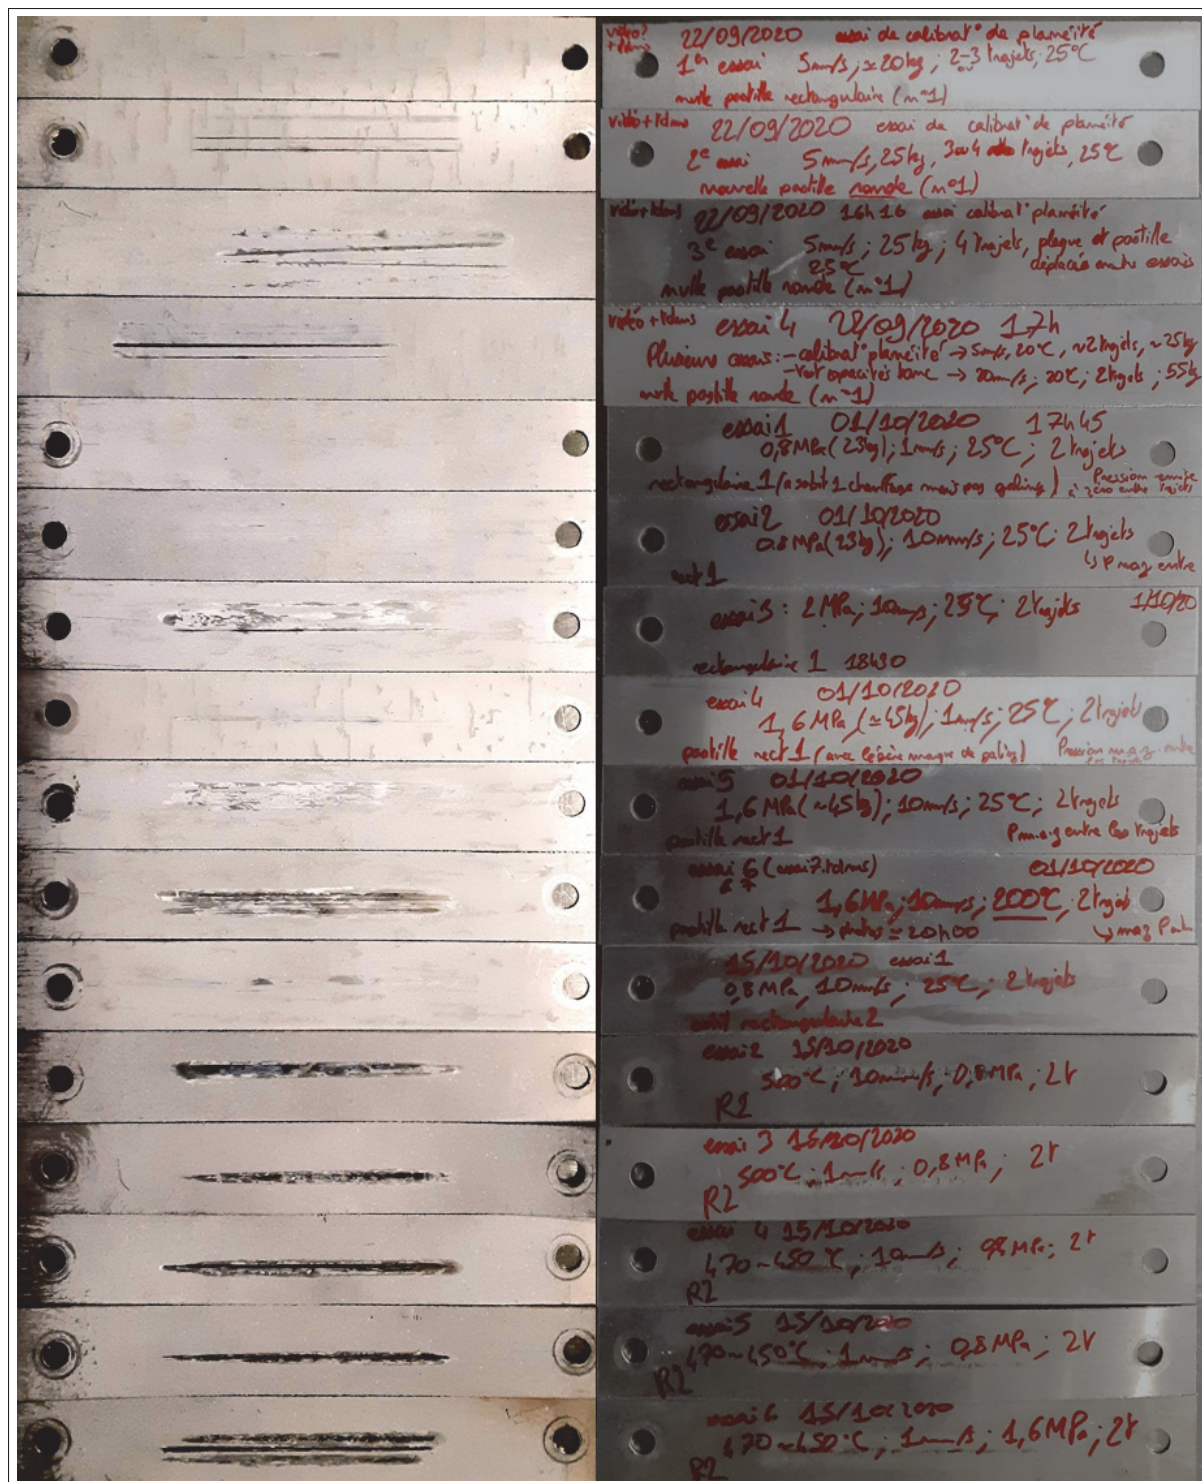 vidéo?
+tdms
22/09/2020 essai de calibrat° de planéité
1er essai 5mm/s ; ≃20kg ; 2-3 trajets, 25°C
nvlle pastille rectangulaire (n°1)
vidéo+tdms 22/09/2020 essai de calibrat° de planéité
2e essai 5mm/s, 25kg, 3 ou 4 trajets, 25°C
nouvelle pastille ronde (n°1)
vidéo+tdms 22/09/2020 16h16 essai calibrat° planéité
3e essai 5mm/s ; 25kg ; 4 trajets, plaque et pastille
25°C déplacée entre essais
nvlle pastille ronde (n°1)
vidéo + tdms essai 4 22/09/2020 17h
Plusieurs essais : - calibrat° planéité → 5mm/s, 20°C, ~2 trajets, ~25kg
capacités banc → 20mm/s ; 20°C ; 2 trajets ; 55kg
nvlle pastille ronde (n°1)
essai 1 01/10/2020 17h45
0,8 MPa (23kg) ; 1mm/s ; 25°C ; 2 trajets
rectangulaire 1 (a subit 1 chauffage mais pas galling) Pression remise
à zéro entre trajets
essai 2 01/10/2020
0.8 MPa (23kg) ; 10mm/s ; 25°C ; 2 trajets
↳ P maz entre
rect 1
essai 3 : 2 MPa ; 10mm/s ; 25°C ; 2 trajets 1/10/20
rectangulaire 1 18h30
essai 4 01/10/2020
1,6 MPa (≃45kg) ; 1mm/s ; 25°C ; 2 trajets
pastille rect 1 (avec légère marque de galling) Pression m.a.z. entre
essai 5 01/10/2020
1,6 MPa (~45kg) ; 10mm/s ; 25°C ; 2 trajets
pastille rect 1 P m.a.z entre les trajets
essai 6 (essai7.tdms) 01/10/2020
1,6 MPa ; 10mm/s ; 200°C, 2 trajets
pastille rect 1 → photos ≃ 20h00 ↳ maz
15/10/2020 essai 1
0,8 MPa, 10mm/s ; 25°C, 2 trajets
outil rectangulaire 2
essai 2 15/10/2020
500°C, 10mm/s, 0,8 MPa, 2t
R2
essai 3 15/10/2020
500°C ; 1mm/s ; 0,8 MPa ; 2t
R2
essai 4 15/10/2020
470~450°C ; 10mm/s ; 0,8 MPa ; 2t
R2
essai 5 15/10/2020
470~450°C ; 1mm/s ; 0,8 MPa ; 2t
R2
essai 6 15/10/2020
470~450°C ; 1mm/s ; 1,6 MPa ; 2t
R2